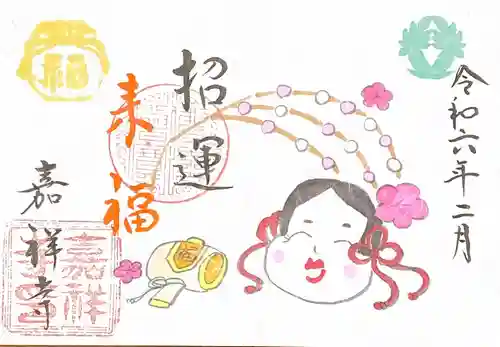 令和六年二月
招運
来福
嘉祥寺
福